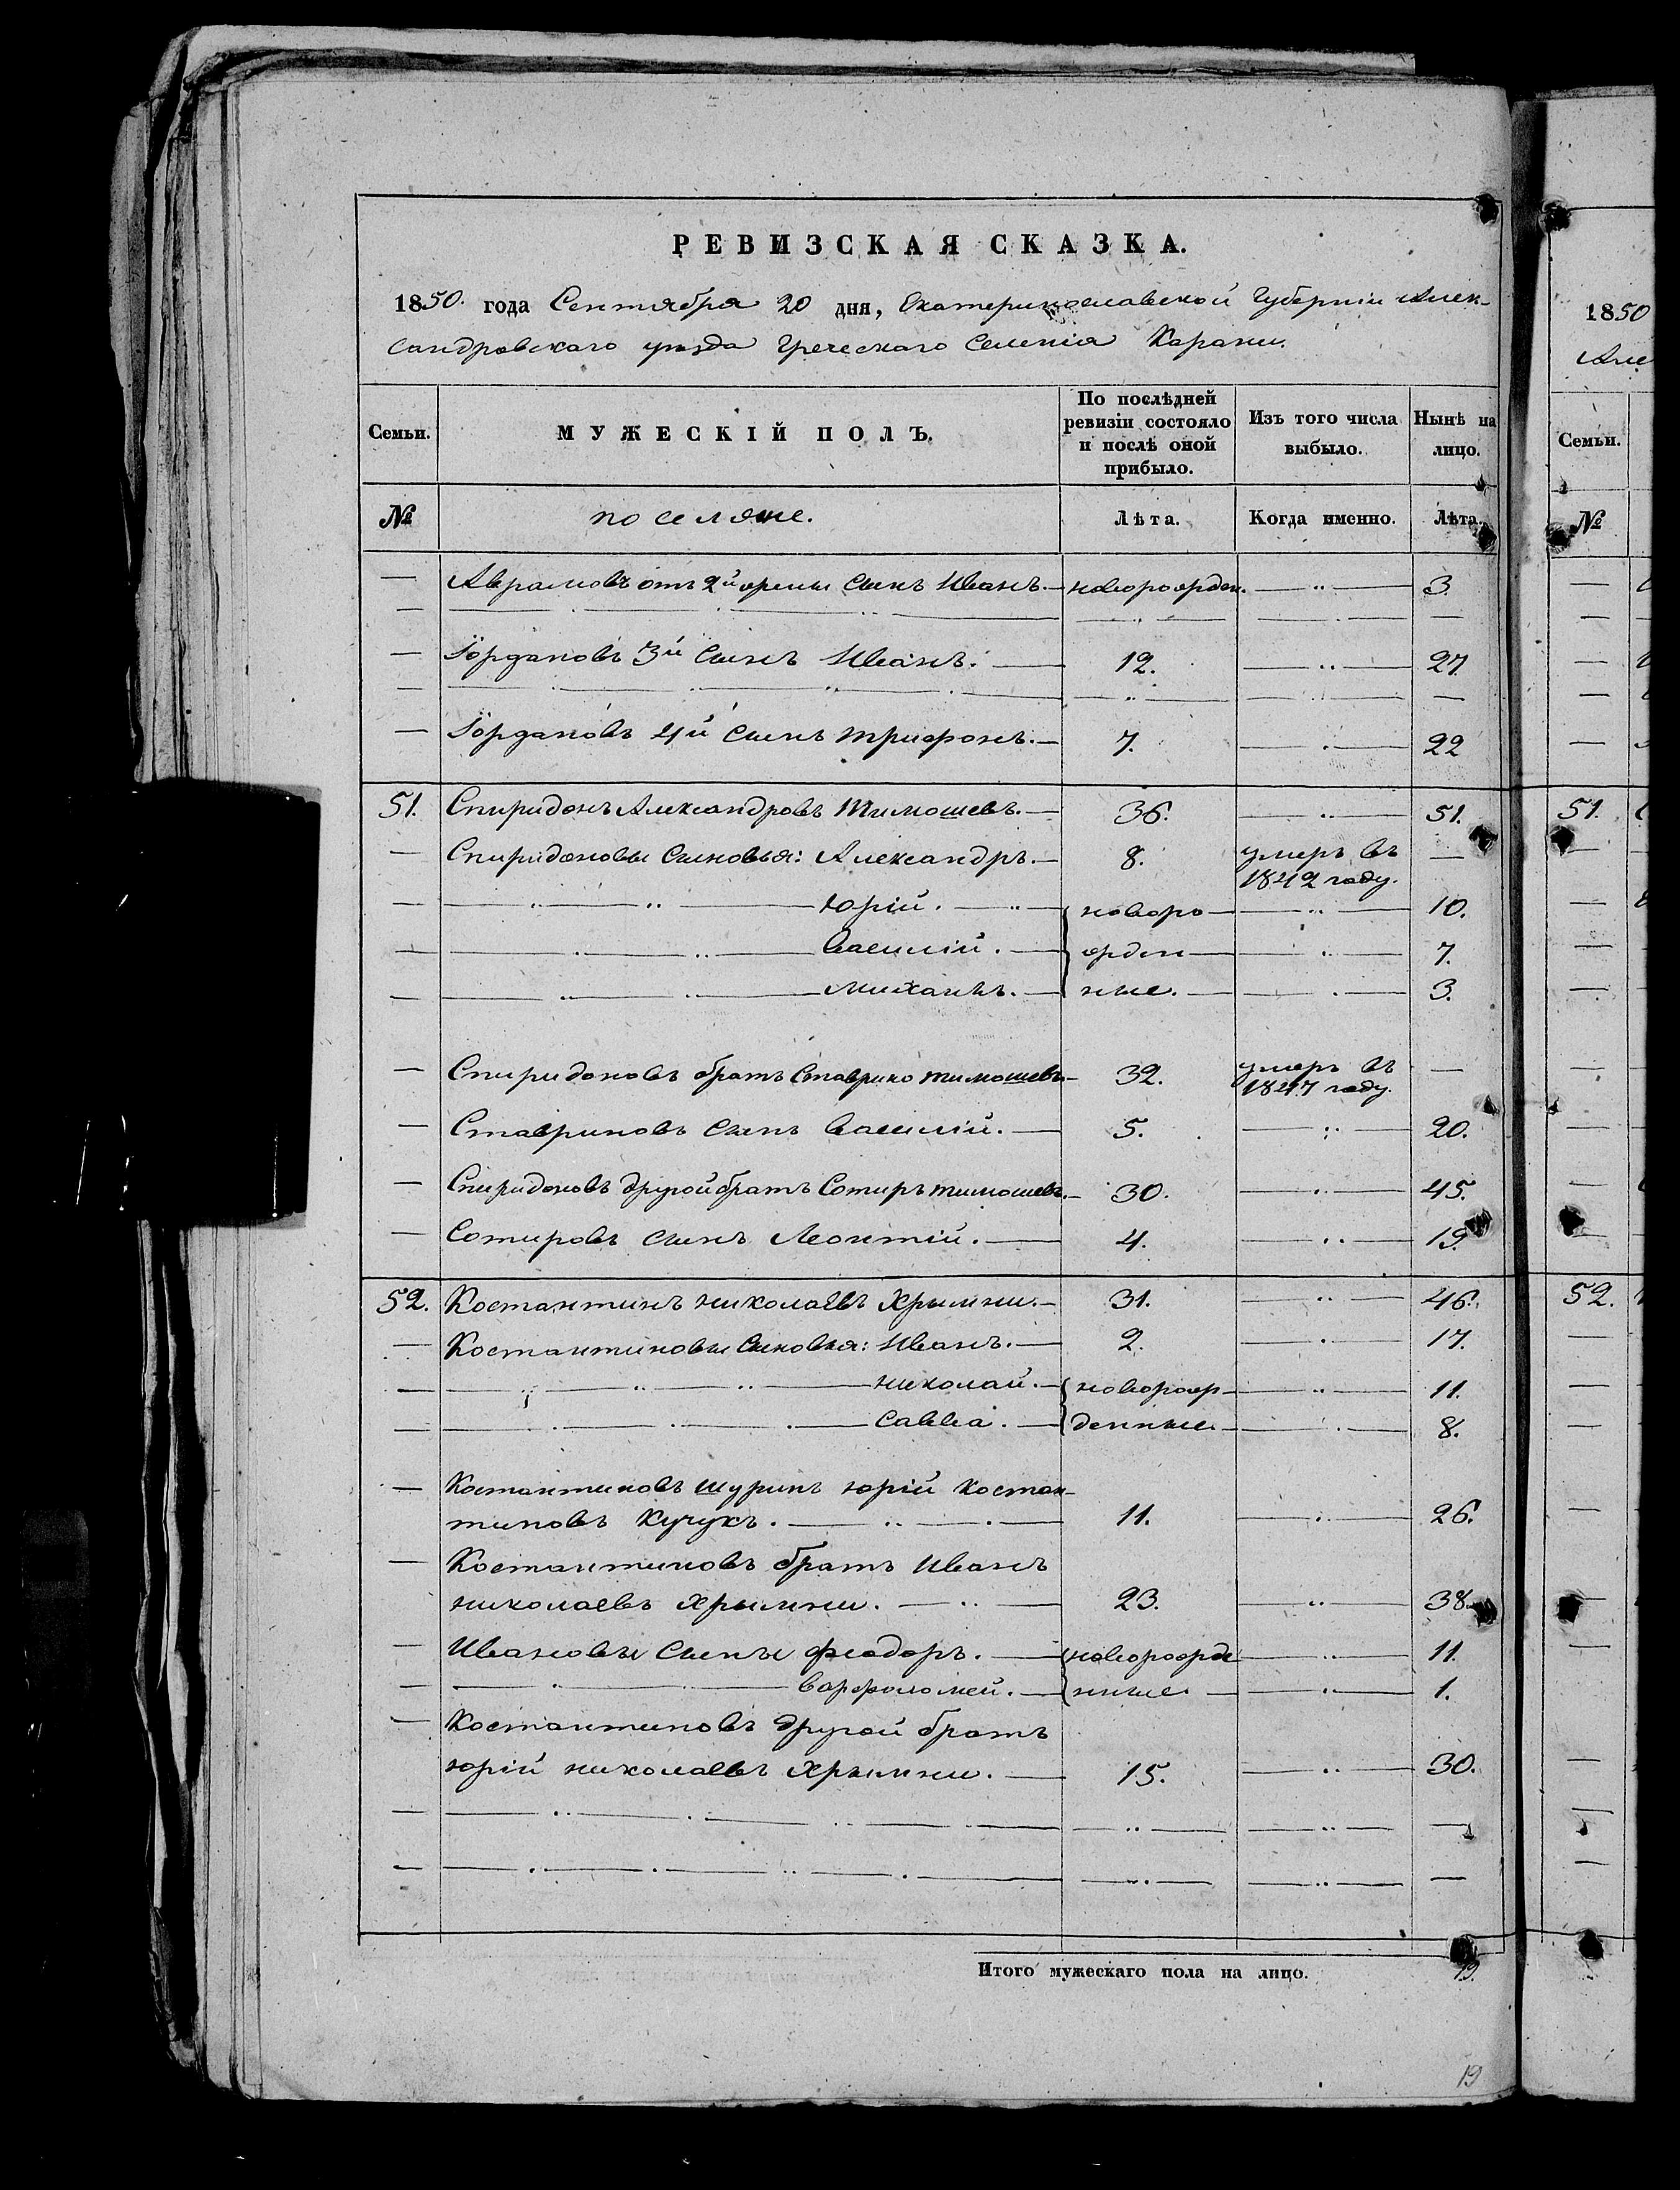 РЕВИЗСКАЯ СКАЗКА.
1850. года Сентября 20 дня, Екатеринославской Губерніи Алек-
сандровскаго уѣзда Греческаго Селенія Карани.
Семьи. МУЖЕСКІЙ ПОЛЪ. По послѣдней ревизіи состояло и послѣ оной прибыло. Изъ того числа выбыло. Нынѣ на лицо.
№ поселяне. Лѣта. Когда именно. Лѣта.
— Аврамовъ отъ 2й жены сынъ Иванъ. — новорожден. — „ — 3.
— Іордановъ 3й сынъ Иванъ. — 12. — „ — 27.
— Іордановъ 4й сынъ трифонъ. — 7. — „ — 22
51. Спиридонъ Александровъ Тимошевъ. — 36. — „ — 51.
— Спиридоновы сыновья: Александръ. — 8. умеръ въ —
1842 году.
— Юрій. — новоро — „ — 10.
— Василій. — жден — „ — 7.
— михаилъ. — ные. — „ — 3.
— Спиридоновъ братъ Ставрико тимошевъ — 32. умеръ въ —
1847 году.
— Ставриковъ сынъ Василій. — 5. — „ — 20.
— Спиридоновъ другой братъ Сотиръ тимошевъ. — 30. — „ — 45.
— Сотировъ сынъ Леонтій. — 4. — „ — 19.
52. Костантинъ николаевъ Хрымни. — 31. — „ — 46.
— Костантиновы сыновья: Иванъ. — 2. — „ — 17.
— николай. — новорож — „ — 11.
— Савва. — денные — „ — 8.
— Костантиновъ шуринъ юрій Костан-
тиновъ Кучукъ. — 11. — „ — 26.
— Костантиновъ братъ Иванъ
николаевъ Хрымни. — 23. — „ — 38.
— Ивановы сыны феодоръ. — новорожде — „ — 11.
— варфоломей. — нные. — „ — 1.
— Костантиновъ другой братъ
юрій николаевъ Хрымни. — 15. — „ — 30.
Итого мужескаго пола на лицо. 19.
19
1850
Але
Семьи.
№
51.
52.